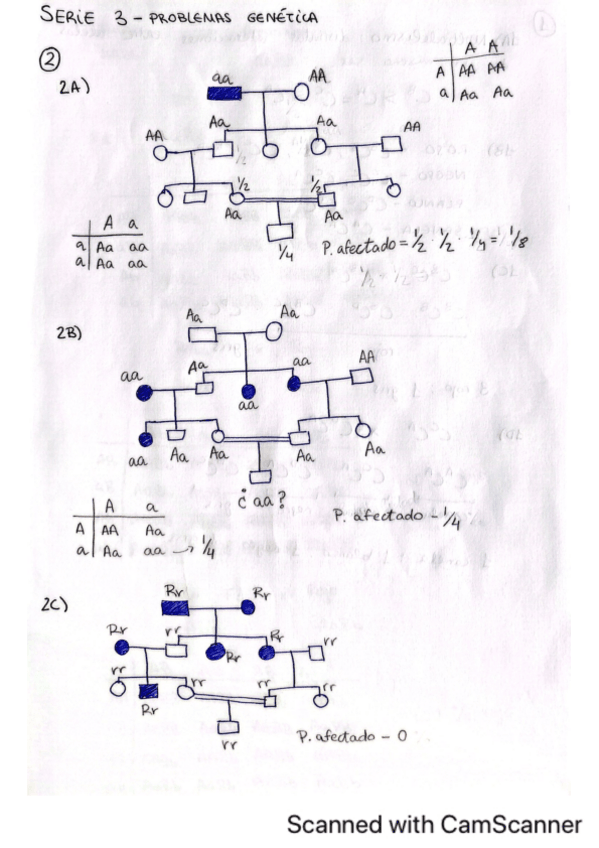 SERIE 3 - PROBLEMAS GENÉTICA
②
2A)
A A
A AA AA
a Aa Aa
aa AA
Aa Aa
AA AA
1/2 1/2
1/2
Aa Aa
1/4
A a
a Aa aa
a Aa aa
P. afectado = 1/2 · 1/2 · 1/4 = 1/8
2B)
Aa Aa
aa Aa aa AA
aa
aa Aa Aa Aa Aa
¿aa?
P. afectado - 1/4
A a
A AA Aa
a Aa aa → 1/4
2C)
Rr Rr
Rr rr Rr Rr rr
rr Rr rr rr rr
rr
P. afectado - 0
Scanned with CamScanner